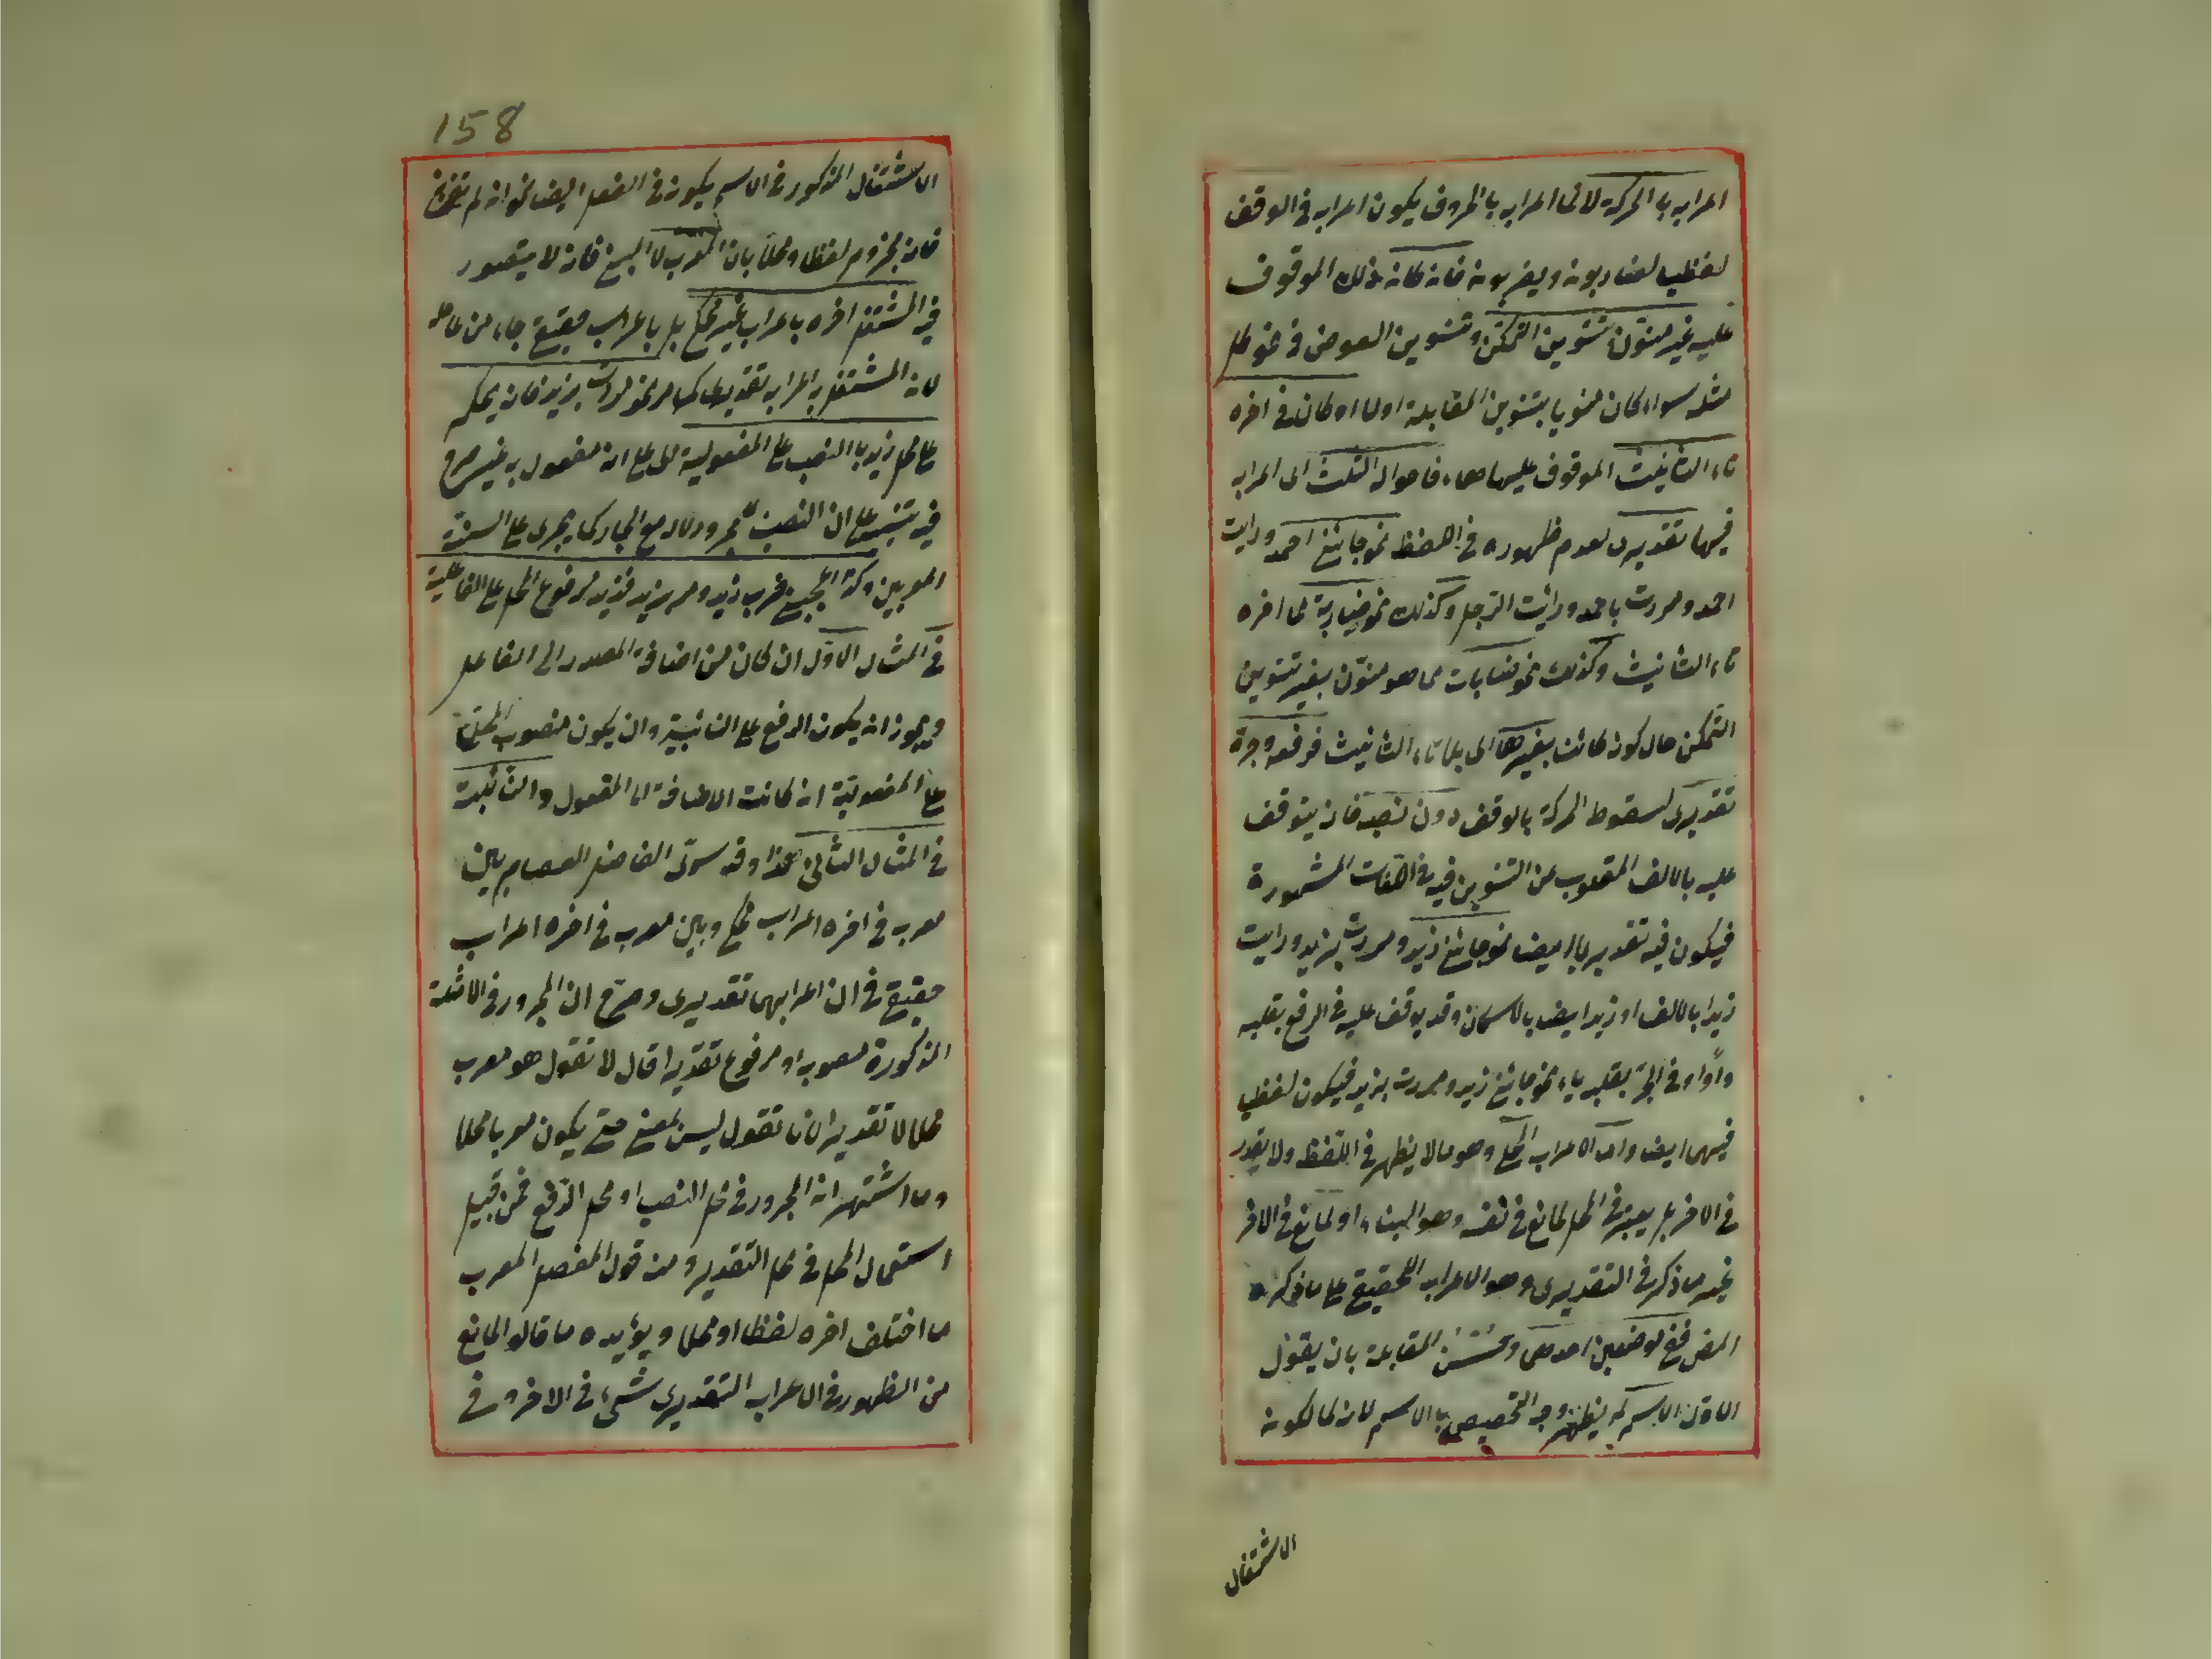 اعرابه بالحركة لا ئى اعرابه بالحروف يكون اعرابه فى الوقف
لفظيا لضاربونه ويضربونه فانه كانه ذلك الموقوف
عليه غير منوّن بتنوين التمكّن وتنوين العوض فى نحو كل
مثله سواء كان منويا بتنوين المقابلة اولا او كان فى اخره
تاء التأنيث الموقوف عليها هاء فاحواله الثلث اى اعرابه
فيها تقديرى لعدم ظهوره فى اللفظ نحو جائنى احمد ورايت
احمد ومررت باحمد ورائت الرجل وكذلك نحو ضاربة مما اخره
تاء التانيث وكذلك نحو ضاربات مما هو منوّن بغير تنوين
التمكن حال كونه كائن بغيرها اى بلا تاء التانيث فرفعه وجره
تقديرى لسقوط الحركة بالوقف دون نصبه فانه يتوقف
عليه بالالف المقلوب عن التنوين فيه فى اللغات المشهورة
فيكون فيه تقديريا ايضا نحو جائنى زيد ومررت بزيد ورايت
زيدا بالالف او زيد ايض بالاسكان وقد يوقف عليه فى الرفع بقلبه
واوا وفى الجرّ بقلبه ياء نحو جائنى زيد ومررت بزيد فيكون لفظيا
فيهما ايض وامّا الاعراب المحلى وهو ما لا يظهر فى اللفظ ولا يقدر
فى الاخر بل يعتبر فى المحل لمانع فى نفسه وهو البناء او لمانع فى الاخر
غير ما ذكر فى التقديرى وهو الاعراب الحقيقى على ما ذكره
المص ففى موضعين احدهما وحسن المقابلة بان يقول
الاول الاسم لم يظهر وجه التخصيص بالاسم لانه كما يكونه
الاشتغال
158
الاشتغال المذكور فى الاسم يكون فى الفعل ايضا نحو ان لم
فانه مجزوم لفظا ومحلا بان المعرب لا المبنى فانه لا يتصور
فيه المشتغل اخره باعراب غير محكى بل باعراب حقيقى جاء من عامله
لانه المشتغل به اعرابه تقديرى كما مر نحو مررت بزيد فانه يحكم
على محل زيد بالنصب على المفعولية اى على انه مفعول به غير صريح
فيه تنبيه على ان النصب للمجرور لا له مع الجار كما يجرى على السنة
المعربين وكذا اعجبنى ضرب زيد ومر بزيد فزيد مرفوع المحل على الفاعلية
فى المثال الاول ان كان من اضافة المصدر الى الفاعل
ويجوز انه يكون الرفع على النائبية وان يكون منصوب المحل
على المفعولية انه كانت الاضافة الى المفعول والنائبية
فى المثال الثانى هكذا وقد سوّى الفاضل العصام بين
معرب فى اخره اعراب محكى وبين معرب فى اخره اعراب
حقيقى فى ان اعرابهما تقديرى وصرح ان المجرور فى الامثلة
المذكورة منصوب او مرفوع تقديرا قال لا تقول هو معرب
محلا لا تقديرا لانا نقول ليس بمبنى حتى يكون معربا محلا
وما اشتهر انه المجرور فى محل النصب او محل الرفع فمن قبيل
استعمال المحل فى محل التقدير ومنه قول المفصل المعرب
ما اختلف اخره لفظا او محلا ويؤيده ما قالوا المانع
من الظهور فى الاعراب التقديرى شىء فى الاخر وفى